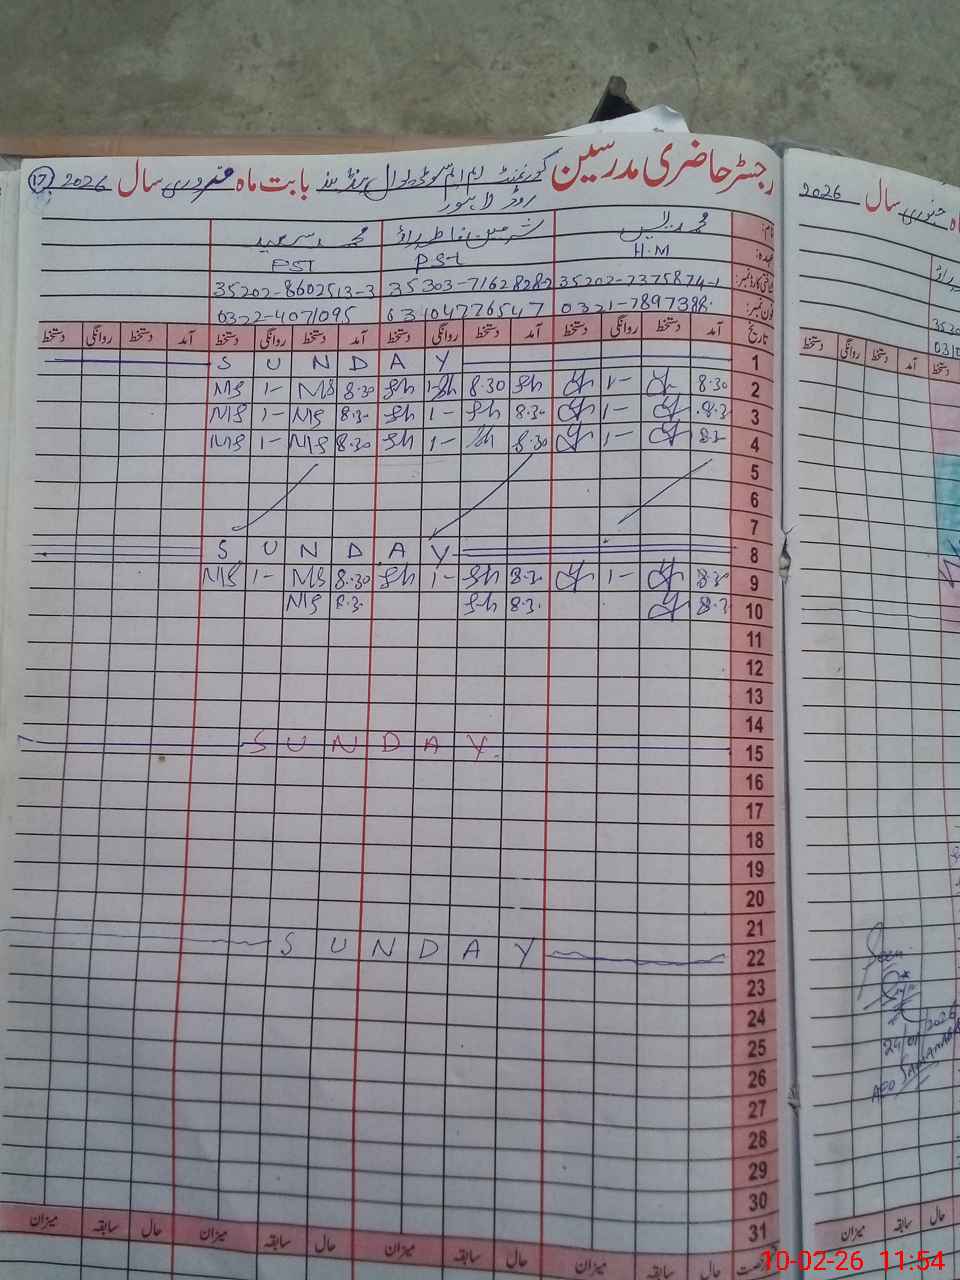 رجسٹر حاضری مدرسین گورنمنٹ ایم ایم سوڈیوال بابت ماہ فروری سال 2026 (17)
روڈ لاہور
نام: محمد شرمین محمد سعید
عہدہ: H.M PST PST
35202-7375874-1 35303-7162828-2 35202-8602513-3
فون نمبر: 0321-7897388 03104776547 0322-4071095
تاریخ آمد دستخط روانگی دستخط آمد دستخط روانگی دستخط آمد دستخط روانگی دستخط آمد دستخط روانگی دستخط
S U N D A Y 1
MS 1- MS 8.30 Sh 1- Sh 8.30 Sh 1- 8.30 2
MS 1- MS 8.3. Sh 1- Sh 8.3. 1- 8.3 3
MS 1- MS 8.3. Sh 1- Sh 8.30 1- 8.3 4
5
6
7
S U N D A Y 8
MS 1- MS 8.30 Sh 1- Sh 8.3. 1- 8.30 9
MS 8.3. Sh 8.3. 8.3 10
11
12
13
14
S U N D A Y 15
16
17
18
19
20
21
S U N D A Y 22
23
24
25
26
27
28
29
30
31
حال سابقہ میزان حال سابقہ میزان حال سابقہ میزان حال سابقہ میزان
سال جنوری 2026
آمد دستخط روانگی دستخط
Seen
24/01/2026
AEO
حال سابقہ میزان
10-02-26 11:54